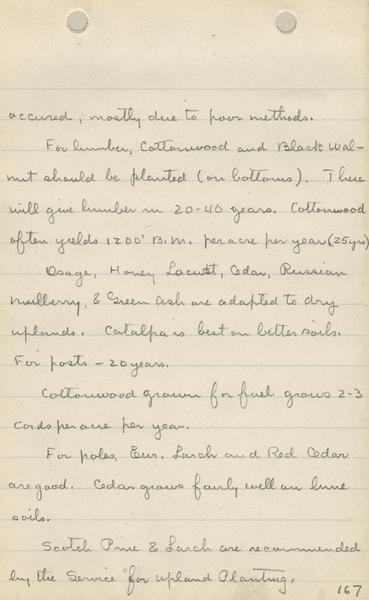 accured, mostly due to poor methods.
For lumber, Cottonwood and Black Wal-
nut should be planted (on bottoms). These
will give lumber in 20-40 years. Cottonwood
often yields 1200' B.M. per acre per year (25 yrs)
Osage, Honey Locust, Cedar, Russian
Mulberry, & Green Ash are adapted to dry
uplands. Catalpa is best on better soils.
For posts - 20 years.
Cottonwood grown for fuel grows 2-3
cords per acre per year.
For poles, Eur. Larch and Red Cedar
are good. Cedar grows fairly well on lime
soils.
Scotch Pine & Larch are recommended
by the Service for Upland Planting.
167